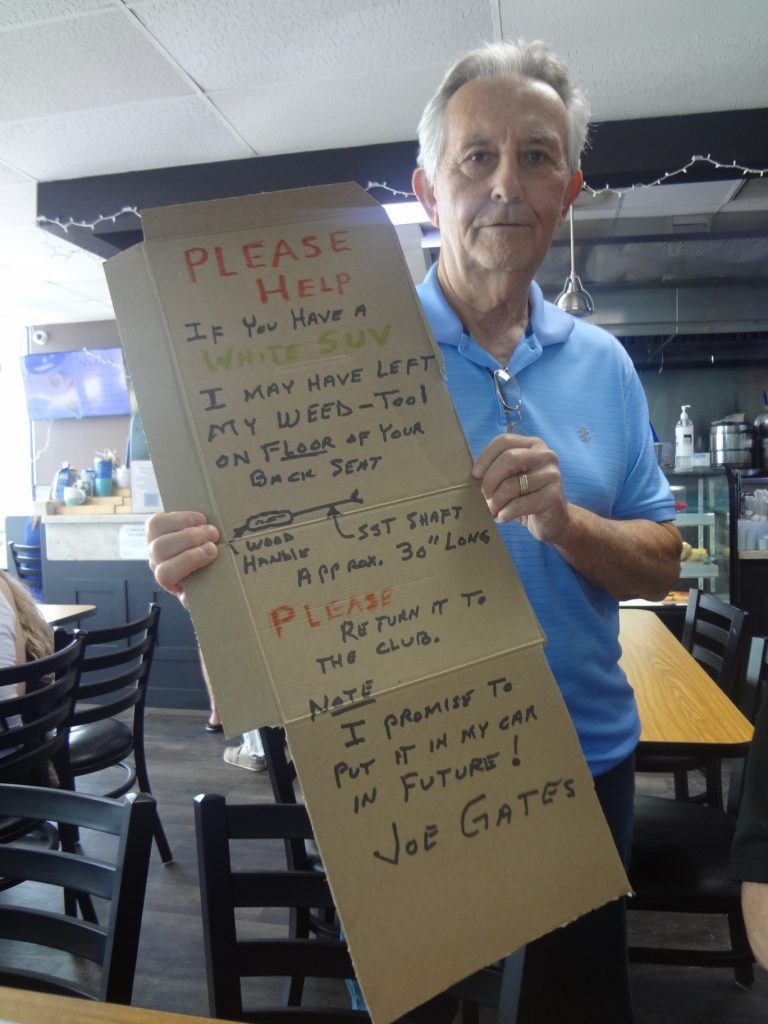 PLEASE
HELP
IF YOU HAVE A
WHITE SUV
I MAY HAVE LEFT
MY WEED-TOOl
ON FLOOR OF YOUR
BACK SEAT
WOOD
HANDLE
SST SHAFT
APPROX. 30" LONG
PLEASE
RETURN IT TO
THE CLUB.
NOTE
I PROMISE TO
PUT IT IN MY CAR
IN FUTURE!
JOE GATES